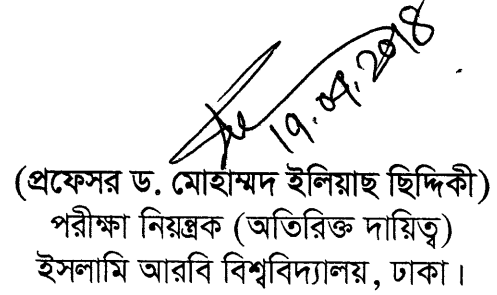 19.04.2018
(প্রফেসর ড. মোহাম্মদ ইলিয়াছ ছিদ্দিকী)
পরীক্ষা নিয়ন্ত্রক (অতিরিক্ত দায়িত্ব)
ইসলামি আরবি বিশ্ববিদ্যালয়, ঢাকা।